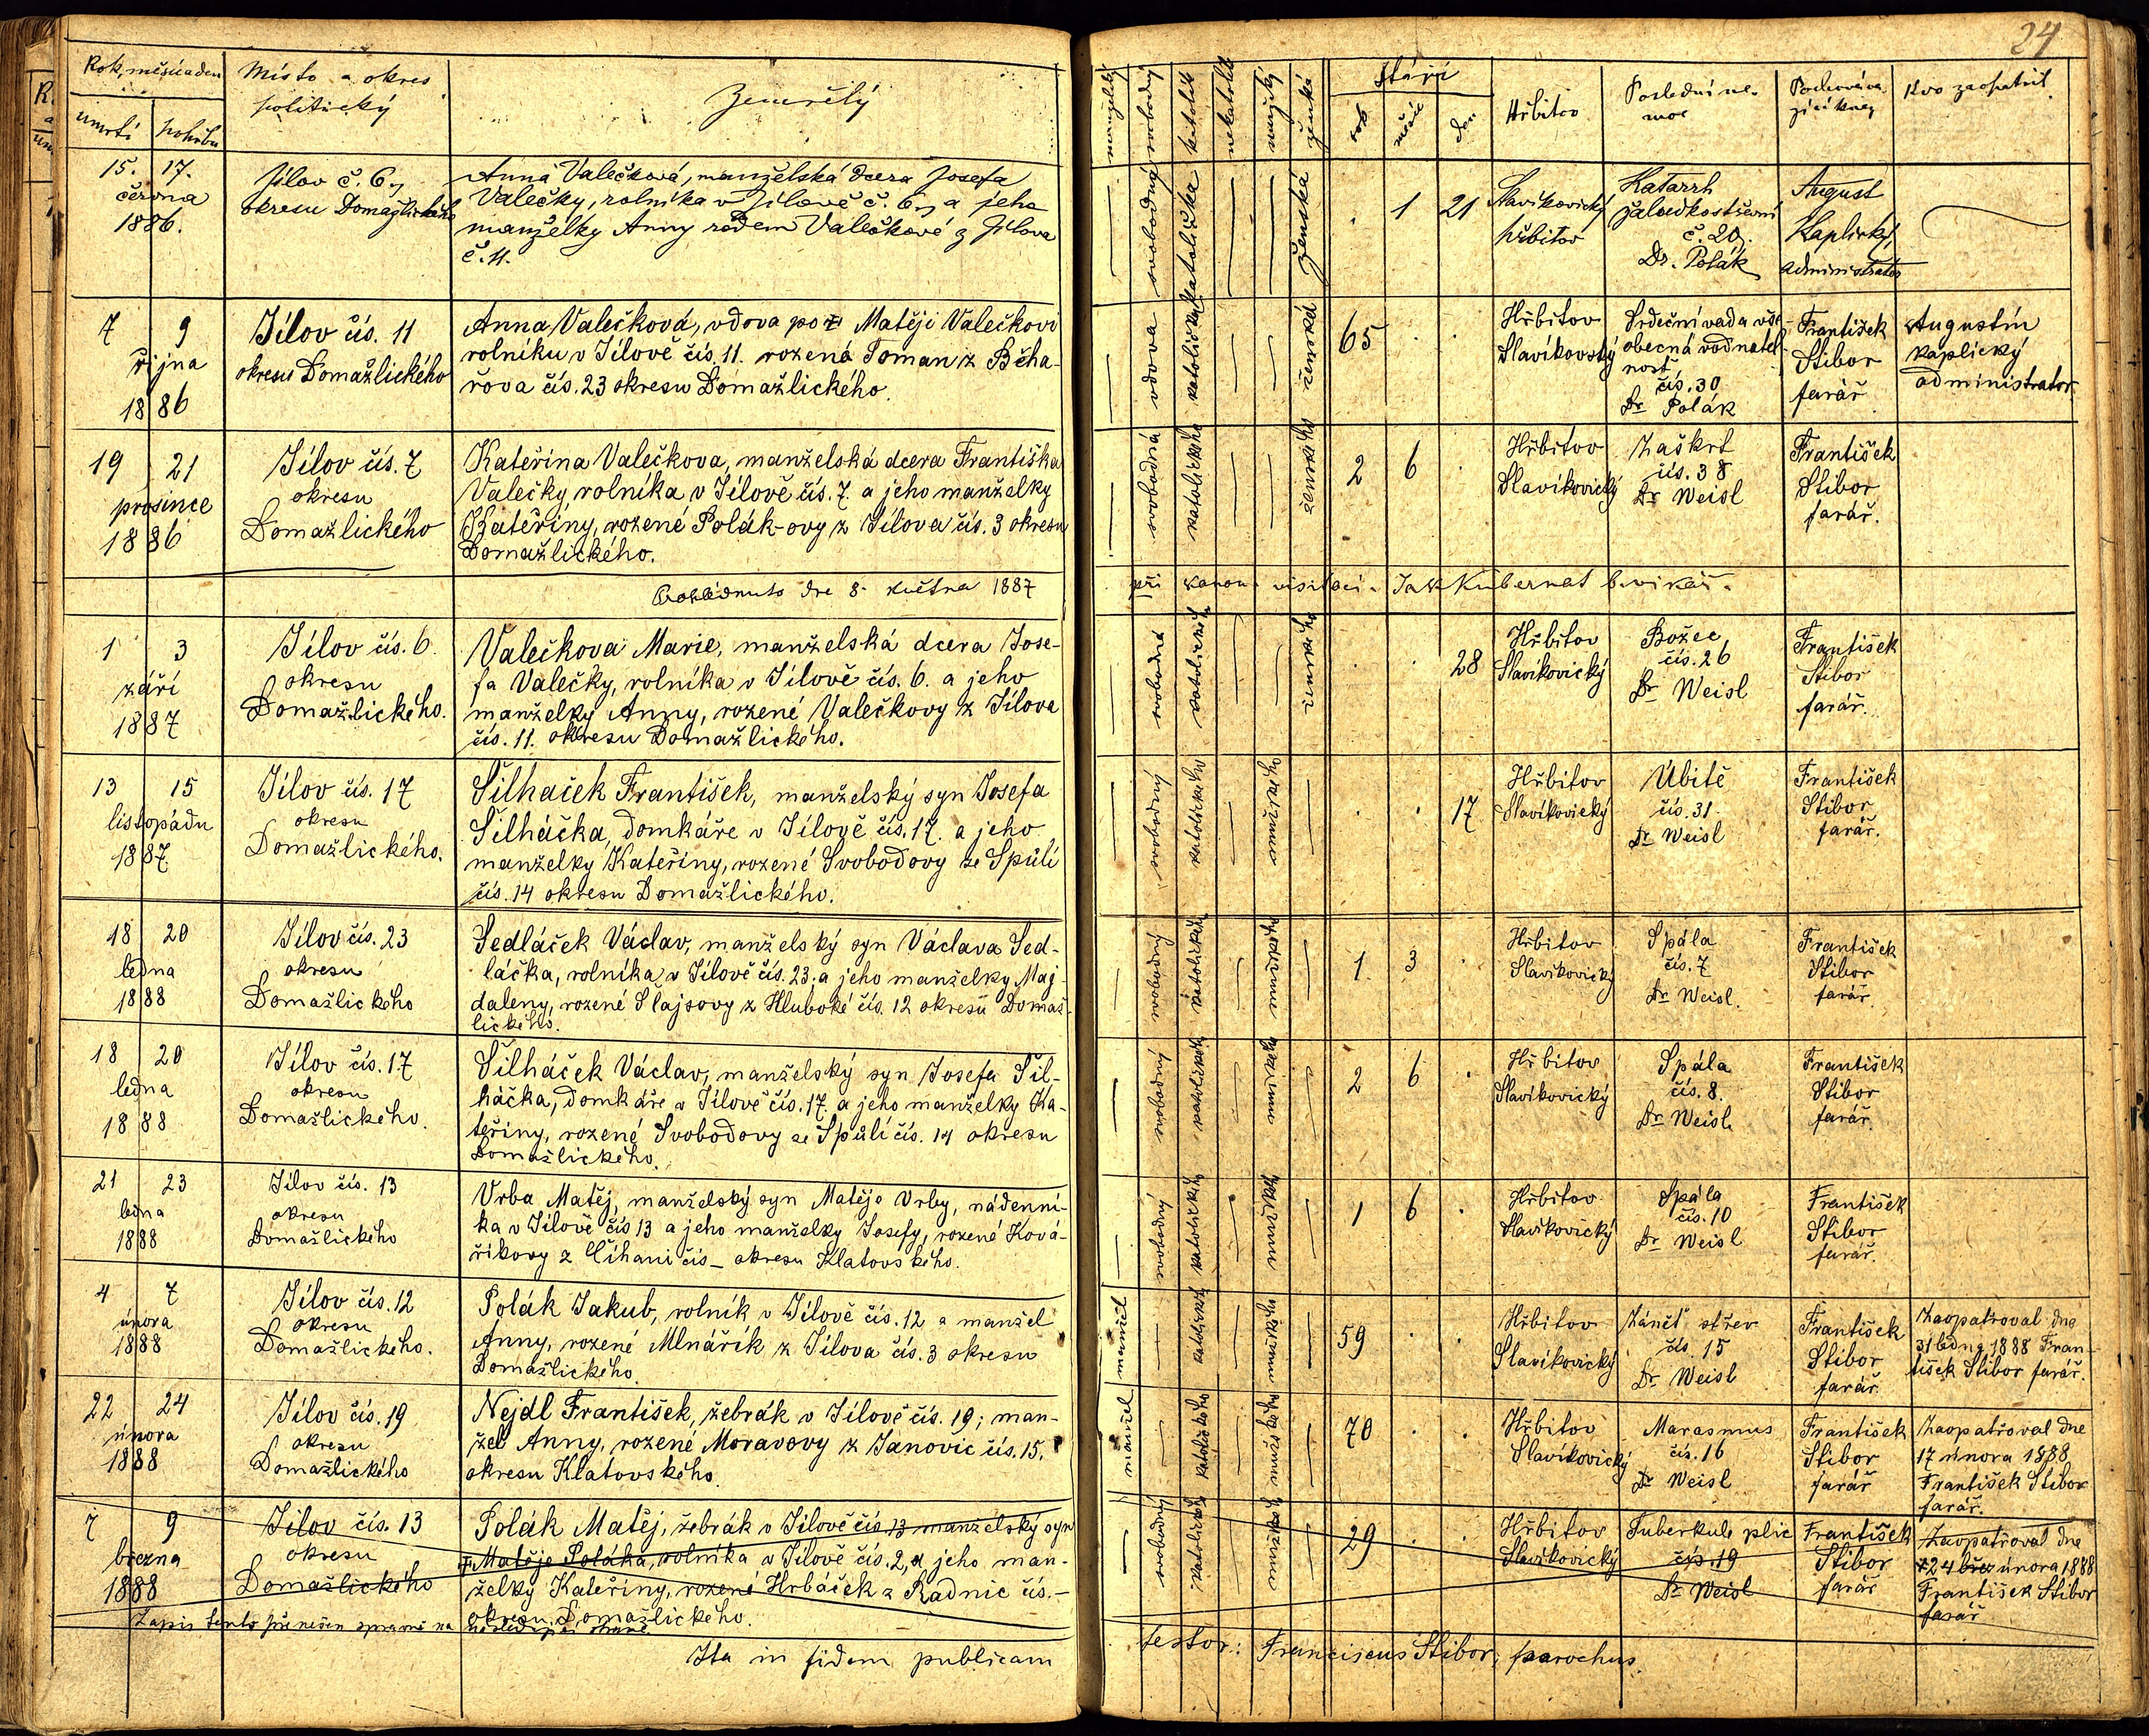 24
Rok, měsíc a den
úmrtí
pohřbu
Místo a okres
politický
Zemřelý
manželský
svobodný
katolík
nekatolík
mužský
ženské
Stáří
rok
měsíc
den
Hřbitov
Poslední ne-
moc
Pochováva-
jící kněz
Kdo zaopatřil
15. 17.
června
1886.
Jílov č. 6,
okresu Domažlického
Anna Valečková, manželská dcera Josefa
Valečky, rolníka v Jílově č. 6, a jeho
manželky Anny rodem Valečkové z Jílova
č. 11.
svobodný
katolička
ženská
1 21
Slavíkovický
hřbitov
Katarrh
žaludkostřevní
č. 20.
Dr. Polák
August
Kaplický,
administrátor
7 9
října
1886
Jílov čís. 11
okresu Domažlického
Anna Valečková, vdova po Matěji Valečkovi
rolníku v Jílově čís. 11. rozená Toman z Běha-
řova čís. 23 okresu Domažlického.
vdova
katolička
ženská
65
Hřbitov
Slavíkovský
Srdeční vada vše-
obecná vodnatel-
nost
čís. 30
Dr Polák
František
Stibor
farář
Augustin
Kaplický
administrator
19 21
prosince
1886
Jílov čís. 7
okresu
Domažlického
Kateřina Valečkova, manželská dcera Františka
Valečky rolníka v Jílově čís. 7. a jeho manželky
Kateřiny, rozené Polák-ovy z Jílova čís. 3 okresu
Domažlického.
svobodná
katolického
ženského
2 6
Hřbitov
Slavíkovický
Záškrt
čís. 38
Dr Weisl
František
Stibor
farář.
Prohlédnuto dne 8. května 1887 při kanon. visitaci. Jak Kubernat b. vikář.
1 3
září
1887
Jílov čís. 6
okresu
Domažlického.
Valečkova Marie, manželská dcera Jose-
fa Valečky, rolníka v Jílově čís. 6. a jeho
manželky Anny, rozené Valečkovy z Jílova
čís. 11. okresu Domažlického.
svobodná
katolického
ženského
28
Hřbitov
Slavíkovický
Božec
čís. 26
Dr Weisl
František
Stibor
farář.
13 15
listopadu
1887.
Jílov čís. 17
okresu
Domažlického.
Šilhaček František, manželský syn Josefa
Šilháčka, domkáře v Jílově čís. 17. a jeho
manželky Kateřiny, rozené Svobodovy ze Spůlí
čís. 14 okresu Domažlického.
svobodný
katolického
mužského
17
Hřbitov
Slavíkovický
Úbitě
čís. 31.
Dr Weisl
František
Stibor
farář.
18 20
ledna
1888
Jílov čís. 23
okresu
Domažlického
Sedláček Václav, manželský syn Václava Sed-
láčka, rolníka v Jílově čís. 23. a jeho manželky Maj-
daleny, rozené Šlajsovy z Hluboké čís. 12 okresu Domaž-
lického.
svobodný
katolického
mužského
1 3
Hřbitov
Slavíkovický
Spála
čís. 7
Dr Weisl.
František
Stibor
farář.
18 20
ledna
1888
Jílov čís. 17
okresu
Domažlického.
Šilháček Václav, manželský syn Josefa Šil-
háčka, domkáře v Jílově čís. 17. a jeho manželky Ka-
teřiny, rozené Svobodovy ze Spůlí čís. 14 okresu
Domažlického.
svobodný
katolického
mužského
2 6
Hřbitov
Slavíkovický
Spála
čís. 8.
Dr Weisl.
František
Stibor
farář.
21 23
ledna
1888
Jílov čís. 13
okresu
Domažlického
Vrba Matěj, manželský syn Matěje Vrby, nádenní-
ka v Jílově čís 13 a jeho manželky Josefy, rozené Ková-
říkovy z Číhaní čís _ okresu Klatovského.
svobodný
katolického
mužského
1 6
Hřbitov
Slavíkovický
Spála
čís. 10
Dr Weisl
František
Stibor
farář.
4 7
února
1888
Jílov čís. 12
okresu
Domažlického.
Polák Jakub, rolník v Jílově čís. 12 a manžel
Anny, rozené Mlnářík z Jílova čís. 3 okresu
Domažlického.
manžel
katolického
mužského
59
Hřbitov
Slavíkovický
Zánět střev
čís. 15
Dr Weisl
František
Stibor
farář.
Zaopatřoval dne
31 ledna 1888 Fran-
tišek Stibor farář.
22 24
února
1888
Jílov čís. 19
okresu
Domažlického
Nejdl František, žebrák v Jílově čís. 19; man-
žel Anny, rozené Moravovy z Janovic čís. 15.
okresu Klatovského.
manžel
katolického
mužského
70
Hřbitov
Slavíkovický
Marasmus
čís. 16
Dr Weisl
František
Stibor
farář
Zaopatřoval dne
17 února 1888
František Stibor
farář.
7 9
března
1888
Jílov čís. 13
okresu
Domažlického
Polák Matěj, žebrák v Jílově čís. 13 manželský syn
Matěje Poláka, rolníka v Jílově čís. 2, a jeho man-
želky Kateřiny, rozené Hrbáček z Radnic čís. _
okresu Domažlického.
svobodný
katolického
mužského
29
Hřbitov
Slavíkovický
Tuberkule plic
čís. 19
Dr Weisl
František
Stibor
farář
Zaopatřoval dne
24 února 1888
František Stibor
farář
Zapis tento přenešen správně na následující straně.
Ita in fidem publicam testor: Franciscus Stibor, parochus.